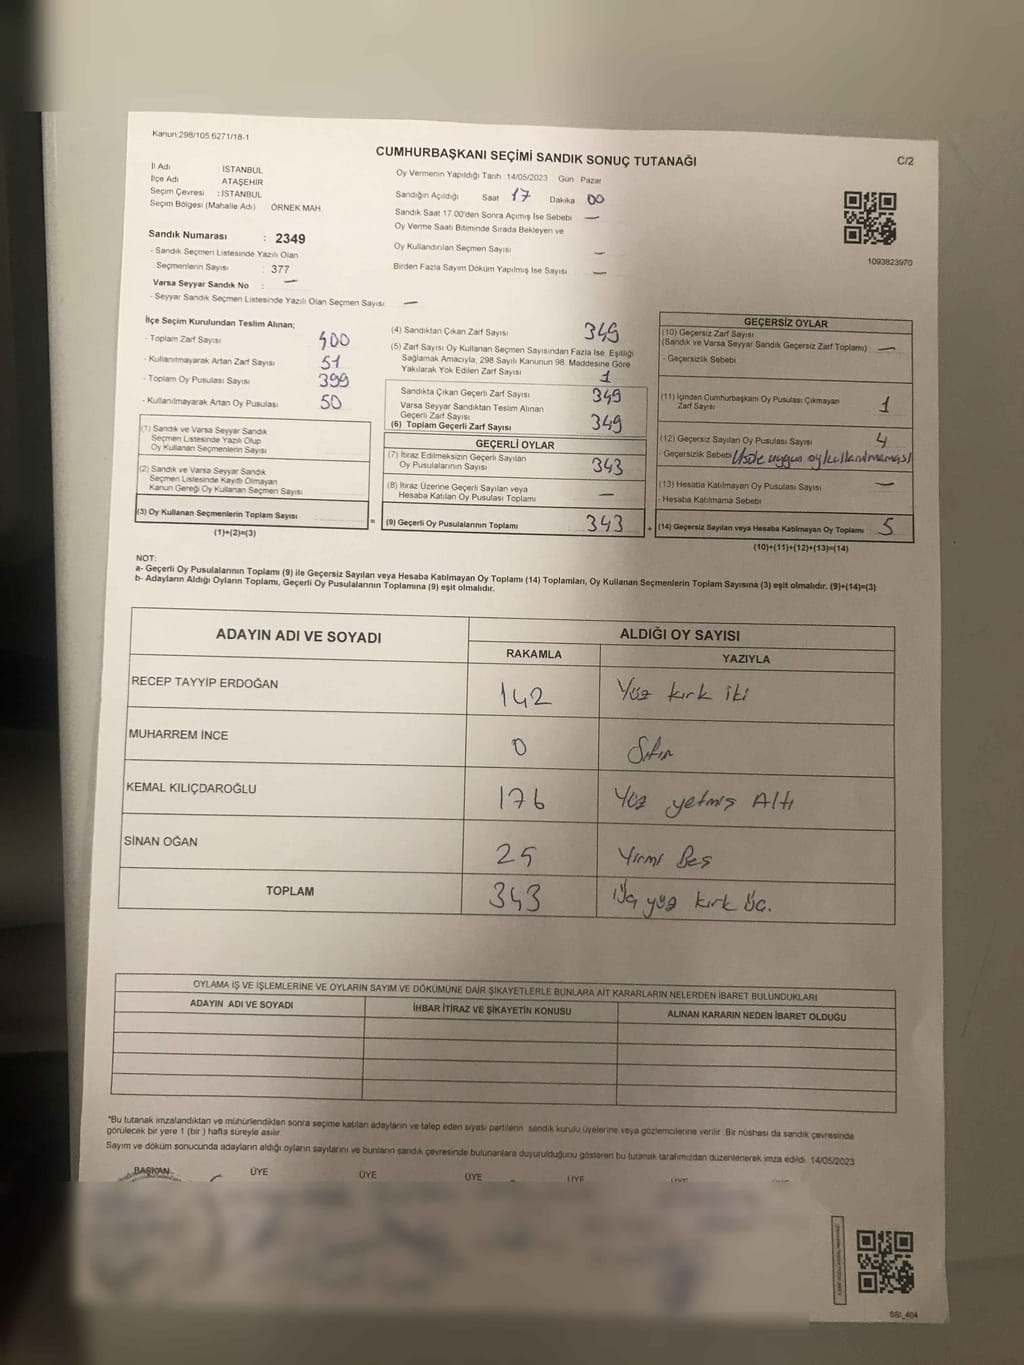 Kanun:298/105,6271/18-1
C/2
CUMHURBAŞKANI SEÇİMİ SANDIK SONUÇ TUTANAĞI
İl Adı İSTANBUL
İlçe Adı ATAŞEHİR
Seçim Çevresi : İSTANBUL
Seçim Bölgesi (Mahalle Adı) ÖRNEK MAH
Sandık Numarası : 2349
- Sandık Seçmen Listesinde Yazılı Olan
Seçmenlerin Sayısı : 377
Varsa Seyyar Sandık No : —
- Seyyar Sandık Seçmen Listesinde Yazılı Olan Seçmen Sayısı: —
Oy Vermenin Yapıldığı Tarih :14/05/2023 Gün Pazar
Sandığın Açıldığı Saat 17 Dakika 00
Sandık Saat 17.00'den Sonra Açılmış İse Sebebi —
Oy Verme Saati Bitiminde Sırada Bekleyen ve
Oy Kullandırılan Seçmen Sayısı —
Birden Fazla Sayım Döküm Yapılmış İse Sayısı —
1093823970
İlçe Seçim Kurulundan Teslim Alınan;
- Toplam Zarf Sayısı 400
- Kullanılmayarak Artan Zarf Sayısı 51
- Toplam Oy Pusulası Sayısı 399
- Kullanılmayarak Artan Oy Pusulası 50
(1) Sandık ve Varsa Seyyar Sandık
Seçmen Listesinde Yazılı Olup
Oy Kullanan Seçmenlerin Sayısı
(2) Sandık ve Varsa Seyyar Sandık
Seçmen Listesinde Kayıtlı Olmayan
Kanun Gereği Oy Kullanan Seçmen Sayısı
(3) Oy Kullanan Seçmenlerin Toplam Sayısı
(1)+(2)=(3)
=
(4) Sandıktan Çıkan Zarf Sayısı 349
(5) Zarf Sayısı Oy Kullanan Seçmen Sayısından Fazla İse, Eşitliği
Sağlamak Amacıyla, 298 Sayılı Kanunun 98. Maddesine Göre
Yakılarak Yok Edilen Zarf Sayısı 1
Sandıkta Çıkan Geçerli Zarf Sayısı 349
Varsa Seyyar Sandıktan Teslim Alınan
Geçerli Zarf Sayısı
(6) Toplam Geçerli Zarf Sayısı 349
GEÇERLİ OYLAR
(7) İtiraz Edilmeksizin Geçerli Sayılan
Oy Pusulalarının Sayısı 343
(8) İtiraz Üzerine Geçerli Sayılan veya
Hesaba Katılan Oy Pusulası Toplamı —
(9) Geçerli Oy Pusulalarının Toplamı 343
+
GEÇERSİZ OYLAR
(10) Geçersiz Zarf Sayısı
(Sandık ve Varsa Seyyar Sandık Geçersiz Zarf Toplamı) —
- Geçersizlik Sebebi
(11) İçinden Cumhurbaşkanı Oy Pusulası Çıkmayan
Zarf Sayısı 1
(12) Geçersiz Sayılan Oy Pusulası Sayısı 4
- Geçersizlik Sebebi Usüle uygun oy kullanılmaması
(13) Hesaba Katılmayan Oy Pusulası Sayısı —
- Hesaba Katılmama Sebebi
(14) Geçersiz Sayılan veya Hesaba Katılmayan Oy Toplamı 5
(10)+(11)+(12)+(13)=(14)
NOT:
a- Geçerli Oy Pusulalarının Toplamı (9) ile Geçersiz Sayılan veya Hesaba Katılmayan Oy Toplamı (14) Toplamları, Oy Kullanan Seçmenlerin Toplam Sayısına (3) eşit olmalıdır. (9)+(14)=(3)
b- Adayların Aldığı Oyların Toplamı, Geçerli Oy Pusulalarının Toplamına (9) eşit olmalıdır.
ADAYIN ADI VE SOYADI ALDIĞI OY SAYISI
RAKAMLA YAZIYLA
RECEP TAYYİP ERDOĞAN 142 Yüz kırk iki
MUHARREM İNCE 0 Sıfır
KEMAL KILIÇDAROĞLU 176 Yüz yetmiş Altı
SİNAN OĞAN 25 Yirmi Beş
TOPLAM 343 Üç yüz kırk üç.
OYLAMA İŞ VE İŞLEMLERİNE VE OYLARIN SAYIM VE DÖKÜMÜNE DAİR ŞİKAYETLERLE BUNLARA AİT KARARLARIN NELERDEN İBARET BULUNDUKLARI
ADAYIN ADI VE SOYADI İHBAR İTİRAZ VE ŞİKAYETİN KONUSU ALINAN KARARIN NEDEN İBARET OLDUĞU
*Bu tutanak imzalandıktan ve mühürlendikten sonra seçime katılan adayların ve talep eden siyasi partilerin sandık kurulu üyelerine veya gözlemcilerine verilir. Bir nüshası da sandık çevresinde
görülecek bir yere 1 (bir) hafta süreyle asılır.
Sayım ve döküm sonucunda adayların aldığı oyların sayılarını ve bunların sandık çevresinde bulunanlara duyurulduğunu gösteren bu tutanak tarafımızdan düzenlenerek imza edildi. 14/05/2023
BAŞKAN ÜYE ÜYE ÜYE ÜYE
SSI_404